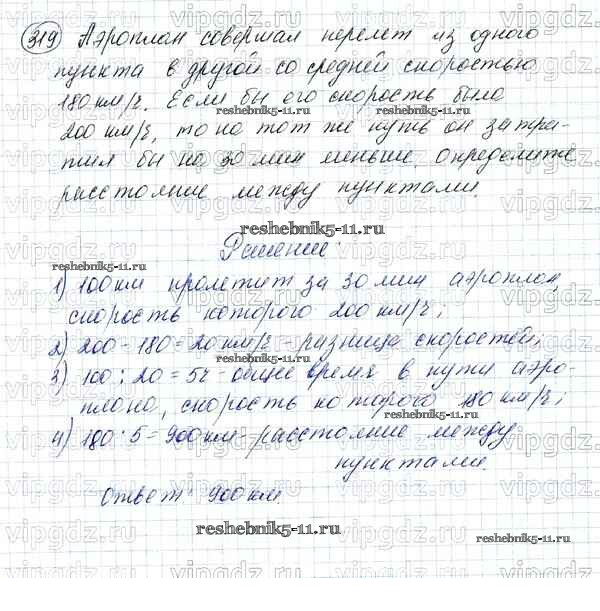 319 Аэроплан совершал перелет из одного
пункта в другой со средней скоростью
180 км/ч. Если бы его скорость была
reshebnik5-11.ru
200 км/ч, то на тот же путь он затра-
тил бы на 30 мин меньше. Определите
расстояние между пунктами.
reshebnik5-11.ru
Решение:
reshebnik5-11.ru
1) 100 км пролетит за 30 мин аэроплан,
скорость которого 200 км/ч;
2) 200 - 180 = 20 км/ч - разница скоростей;
reshebnik5-11.ru
3) 100 : 20 = 5ч - общее время в пути аэро-
плана, скорость которого 180 км/ч;
reshebnik5-11.ru
4) 180 · 5 = 900 км - расстояние между
пунктами.
Ответ: 900 км.
reshebnik5-11.ru
reshebnik5-11.ru